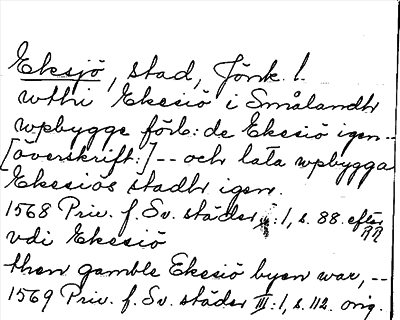 Eksjö, stad, Jönk. l.
wthi Ekesiö i Smålandh
wpbygge förb: de Ekesiö igen --
[överskrift:] -- och lata wpbygga
Ekesiös stadh igen.
1568 Priv. f. Sv. städer III:1, s. 88. efter
vdi Ekesiö
then gamble Ekesiö byen war, --
1569 Priv. f. Sv. städer III:1, s. 112. orig.